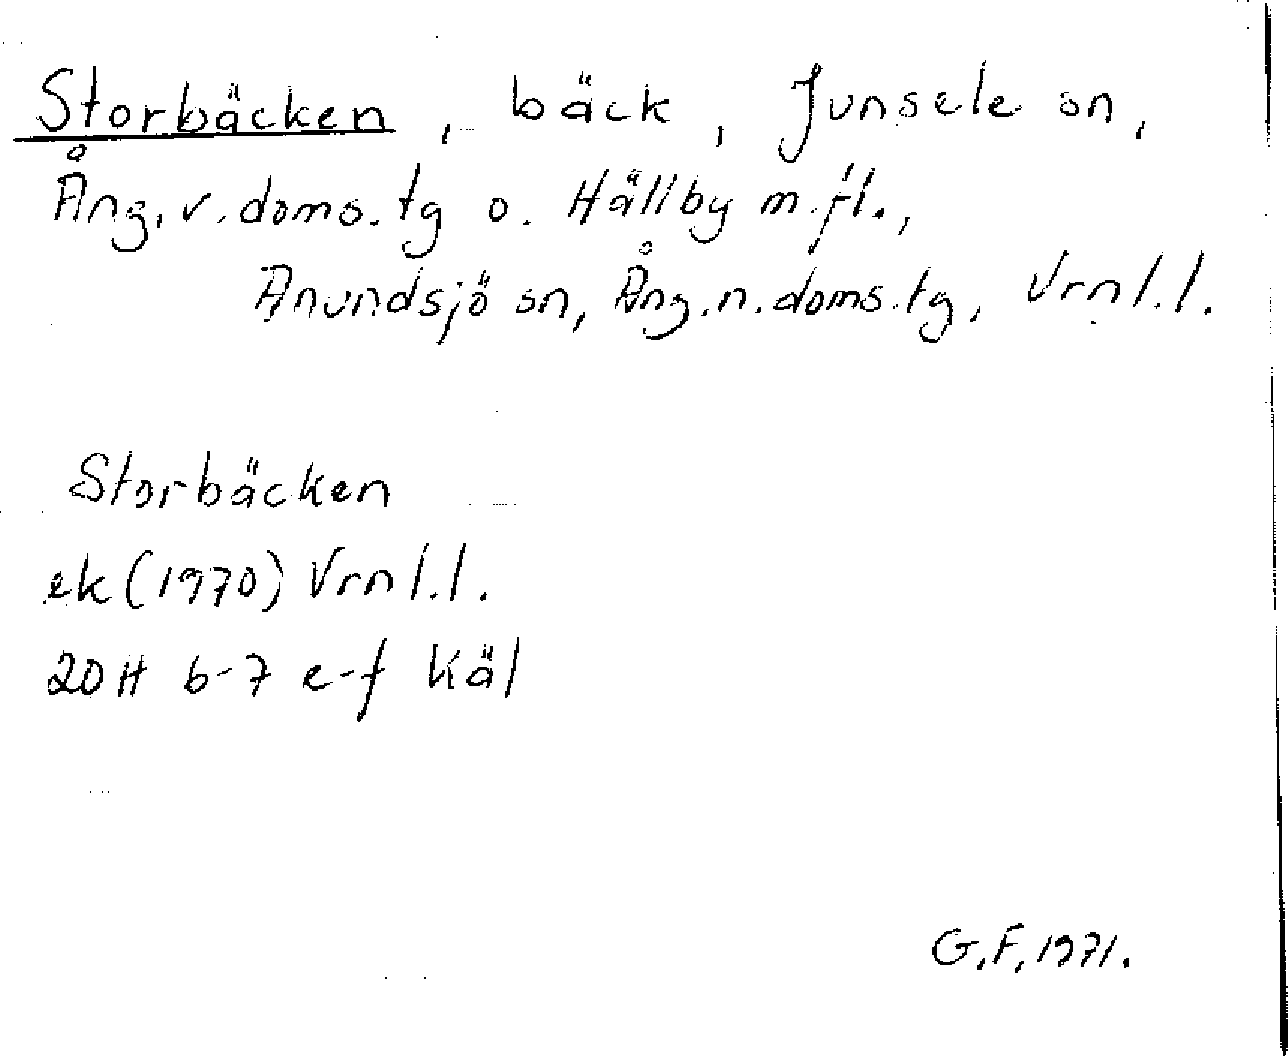 Storbäcken, bäck, Junsele sn,
Ång.v.doms.tg o. Hällby m.fl.,
Anundsjö sn, Ång.n.doms.tg, Vrnl.l.
Storbäcken
ek (1970) Vrnl.l.
20H 6-7 e-f Käl
G.F. 1971.